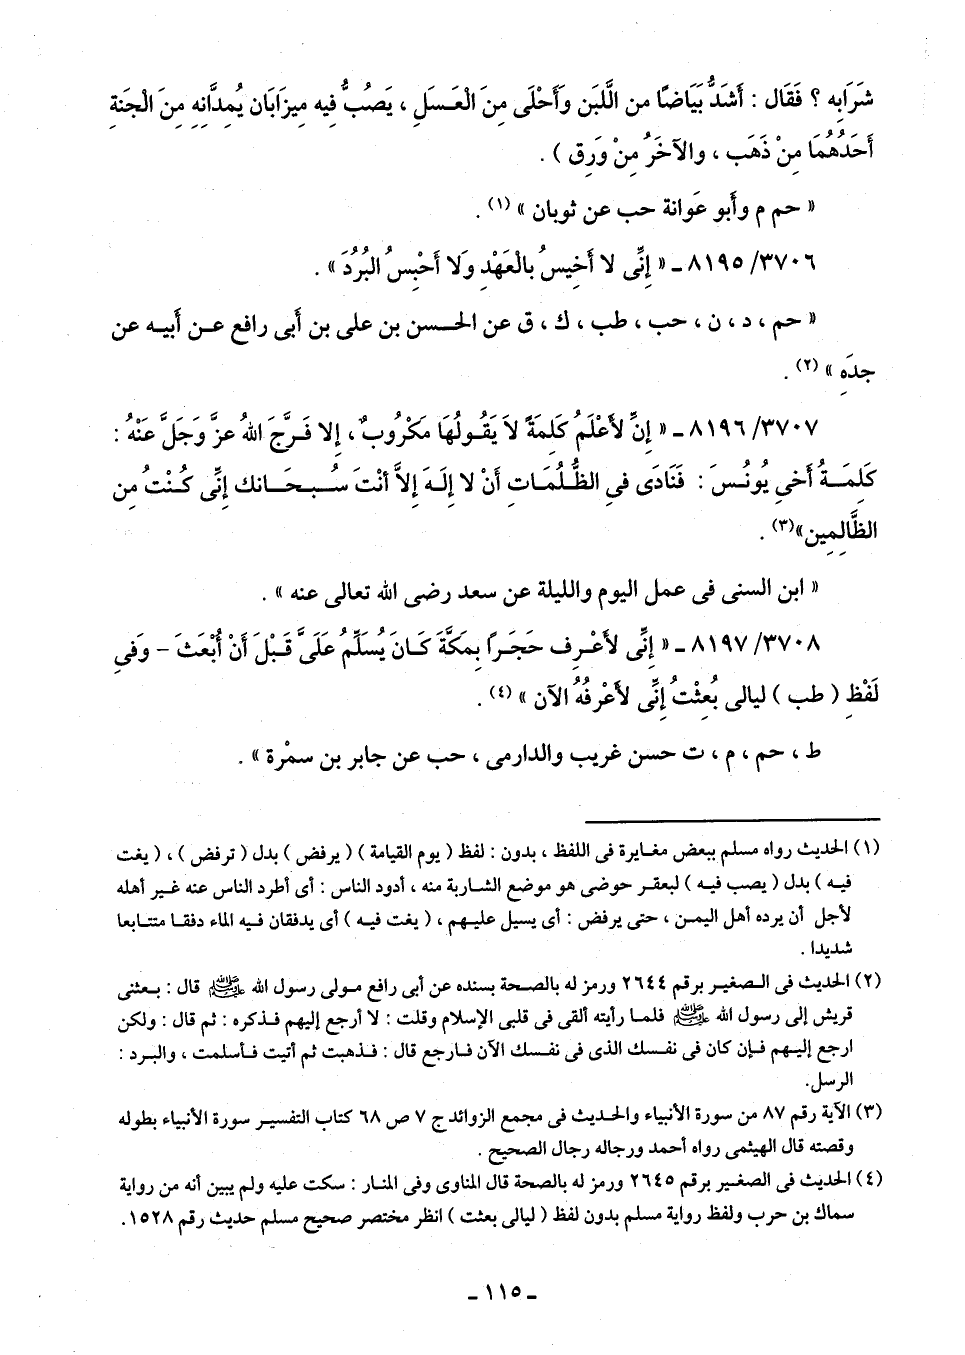 شَرَابِه ؟ فَقَال : أَشَدُّ بَيَاضًا من اللَّبَن وَأَحْلَى مِنَ الْعَسَلِ ، يَصُبُّ فِيه مِيزَابَان يُمِدَّانِهِ مِنَ الْجَنة
أَحَدُهُمَا مِنْ ذَهَب ، والآخَرُ مِنْ وَرِق ) .
« حم م وأَبو عَوانة حب عن ثوبان » (١) .
٨١٩٥/٣٧٠٦ ـ « إِنِّى لا أَخِيسُ بالْعَهْدِ وَلا أَحْبِسُ البُرُدَ » .
« حم ، د ، ن ، حب ، طب ، ك ، ق عن الحسن بن على بن أَبى رافع عن أَبيه عن
جدَه » (٢) .
٨١٩٦/٣٧٠٧ ـ « إِنِّ لأَعْلَمُ كَلِمَةً لاَ يَقُولُهَا مَكْرُوبٌ ، إِلا فَرَّجَ اللهُ عزَّ وَجَلَّ عَنْهُ :
كَلِمَةُ أَخِي يُونُسَ : فَنَادَى في الظُّلُمَاتِ أَنْ لا إِلَهَ إِلاَّ أَنْتَ سُبحَانك إِنِّى كُنْتُ مِن
الظَّالِمِين»(٣) .
« ابن السنى فى عمل اليوم والليلة عن سعد رضى الله تعالى عنه » .
٨١٩٧/٣٧٠٨ ـ « إِنِّى لأَعْرِف حَجَرًا بِمَكَّةَ كَانَ يُسَلِّمُ عَلَىَّ قَبْلَ أَنْ أُبْعَثَ – وَفي
لَفْظِ ( طب ) ليالى بُعِثْتُ إِنِّى لأَعْرفُهُ الآن » (٤) .
ط ، حم ، م ، ت حسن غريب والدارمى ، حب عن جابر بن سمْرة » .
(١) الحديث رواه مسلم ببعض مغايرة فى اللفظ ، بدون : لفظ ( يوم القيامة ) ( يرفض ) بدل ( ترفض ) ، ( يغت
فيه ) بدل ( يصب فيه ) لبعقر حوضى هو موضع الشاربة منه ، أدود الناس : أى أطرد الناس عنه غير أهله
لأجل أن يرده أهل اليمن ، حتى يرفض : أى يسيل عليهم ، ( يغت فيه ) أى يدفقان فيه الماء دفقا متتابعا
شديدا .
(٢) الحديث فى الصغير برقم ٢٦٤٤ ورمز له بالصحة بسنده عن أبى رافع مولى رسول الله ﷺ قال : بعثنى
قريش إلى رسول الله ﷺ فلما رأيته ألقى فى قلبى الإسلام وقلت : لا أرجع إليهم فذكره : ثم قال : ولكن
ارجع إليهم فإن كان فى نفسك الذى فى نفسك الآن فارجع قال : فذهبت ثم أتيت فأسلمت ، والبرد :
الرسل.
(٣) الآية رقم ٨٧ من سورة الأنبياء والحديث فى مجمع الزوائد ج ٧ ص ٦٨ كتاب التفسير سورة الأنبياء بطوله
وقصته قال الهيثمى رواه أحمد ورجاله رجال الصحيح .
(٤) الحديث فى الصغير برقم ٢٦٤٥ ورمز له بالصحة قال المناوى وفى المنار : سكت عليه ولم يبين أنه من رواية
سماك بن حرب ولفظ رواية مسلم بدون لفظ ( ليالى بعثت ) انظر مختصر صحيح مسلم حديث رقم ١٥٢٨.
ـ ١١٥ ـ